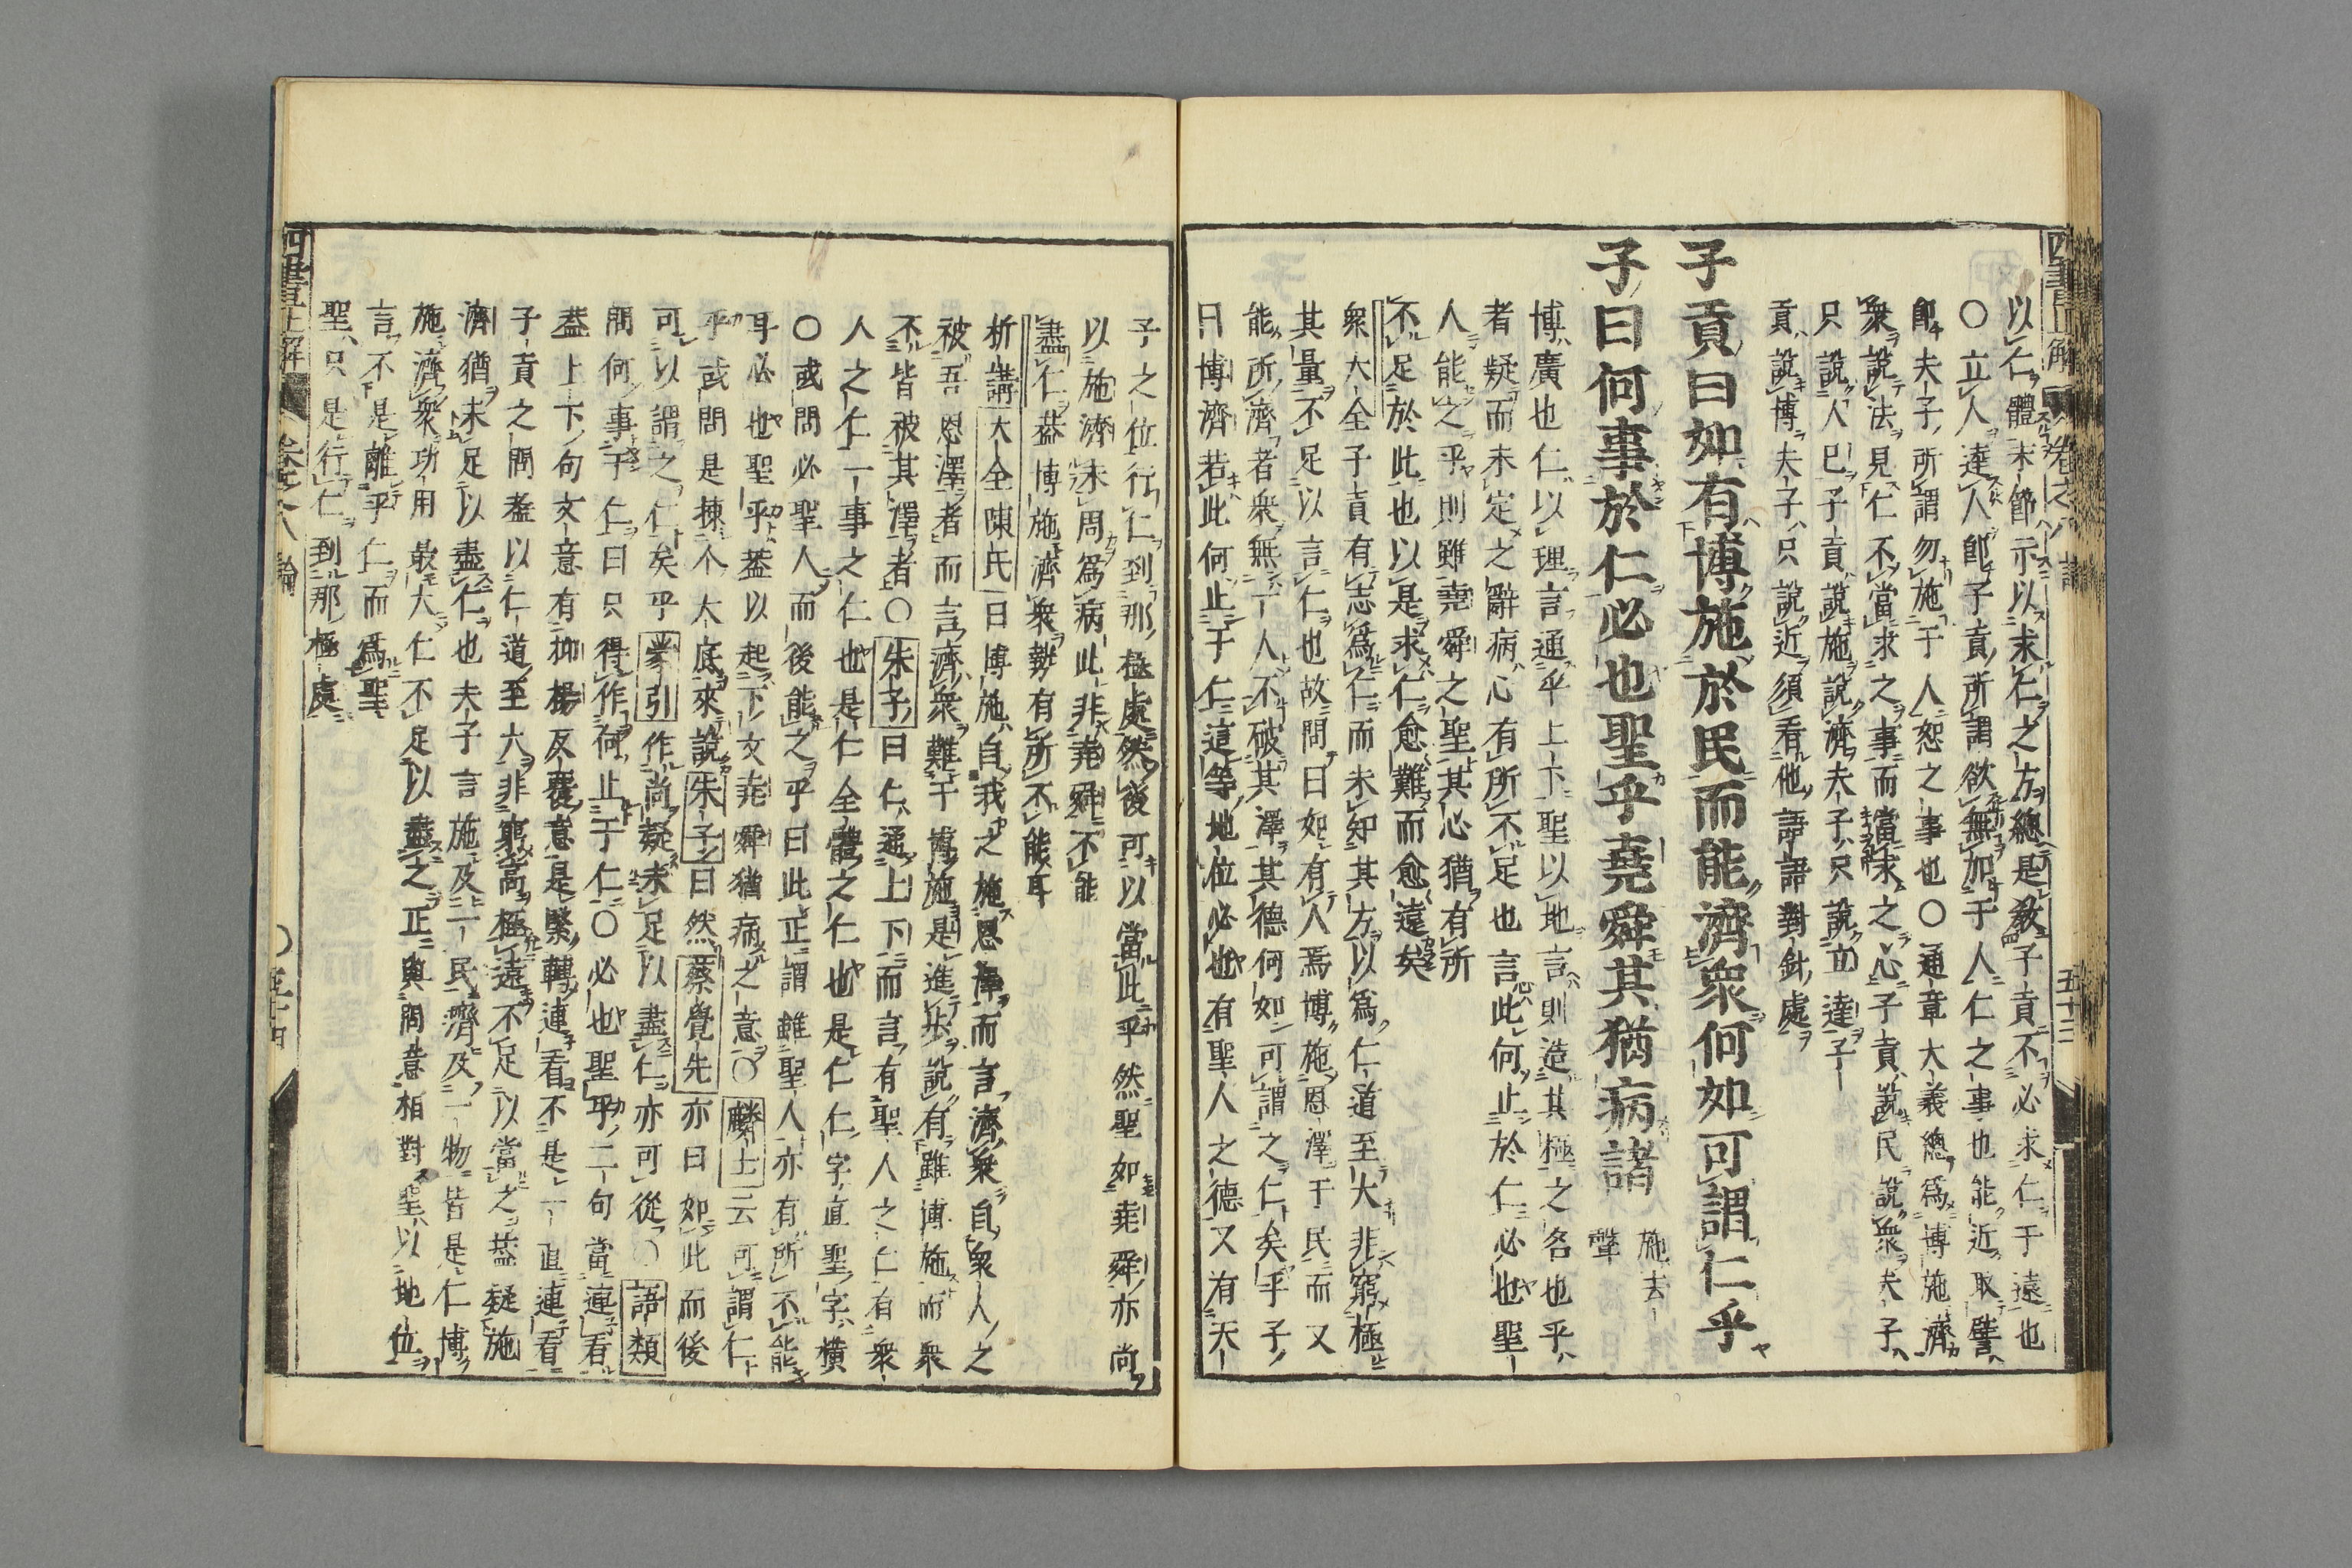 四書正解 卷之八 論 五十三
以仁體未節示以求仁之方總是教子貢不必求仁于遠也
○立人達人即子貢所謂欲無加于人仁之事也能近取譬
即夫子所謂勿施于人恕之事也○通章大義總為博施濟
衆說法見仁不當求之事而當求之心子貢說民說衆夫子
只說人已子貢說施說濟夫子只說立達子
貢說博夫子只說近須看他語語對針處
子貢曰如有博施於民而能濟衆何如可謂仁乎
子曰何事於仁必也聖乎堯舜其猶病諸 施去聲
博廣也仁以理言通乎上下聖以地言則造其極之名也乎
者疑而未定之辭病心有所不足也言此何止於仁必也聖
人能之乎則雖堯舜之聖其心猶有所
不足於此也以是求仁愈難而愈遠矣
衆大全子貢有志為仁而未知其方以為仁道至大非窮極
其量不足以言仁也故問曰如有人焉博施恩澤于民而又
能所濟者衆無一人不破其澤其德何如可謂之仁矣乎子
曰博濟若此何止于仁這等地位必也有聖人之德又有天
子之位行仁到那極處然後可以當此乎然聖如堯舜亦尚
以施濟未周為病此非堯舜不能
盡仁葢博施濟衆勢有所不能耳
析講大全陳氏曰博施自我之施恩澤而言濟衆自衆人之
被吾恩澤者而言濟衆難于博施是進步說有雖博施而衆
不皆被其澤者○朱子曰仁通上下而言有聖人之仁有衆
人之仁一事之仁也是仁全體之仁也是仁仁字直聖字橫
○或問必聖人而後能之乎曰此正謂雖聖人亦有所不能
耳必也聖乎葢以起下文堯舜猶病之意○麟士云可謂仁
乎或問是揀个大底來說朱子曰然蔡覺先亦曰如此而後
可以謂之仁矣乎蒙引作尚疑未足以盡仁亦可從○語類
問何事于仁曰只得作何止于仁○必也聖乎二句當連看
葢上下句文意有抑揚反覆意是緊轉連看不是一直連看
子貢之問葢以仁道至大非窮高極遠不足以當之葢疑施
濟猶未足以盡仁也夫子言施及一民濟及一物皆是仁博
施濟衆功用最大仁不足以盡之正與問意相對聖以地位
言不是離乎仁而為聖
聖只是行仁到那極處
四書正解 卷之八 論 ○五十四